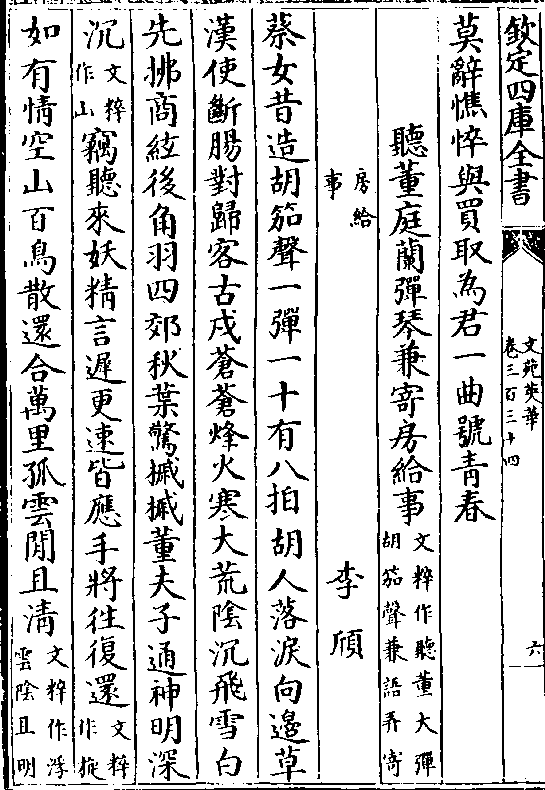 欽定四庫全書
文苑英華
卷三百三十四
六
莫辭憔悴與買取為君一曲號青春
聽董庭蘭彈琴兼寄房給事
文粹作聽董大彈
胡笳聲兼語弄寄
房給
事
李頎
蔡女昔造胡笳聲一彈一十有八拍胡人落淚向邉草
漢使斷腸對歸客古戍蒼蒼烽火寒大荒陰沉飛雪白
先拂商絃後角羽四郊秋葉驚摵摵董夫子通神明深
沉文粹作山竊聽來妖精言遲更速皆應手將徃復還文粹作旋
如有情空山百鳥散還合萬里孤雲閒且清文粹作浮雲陰且明